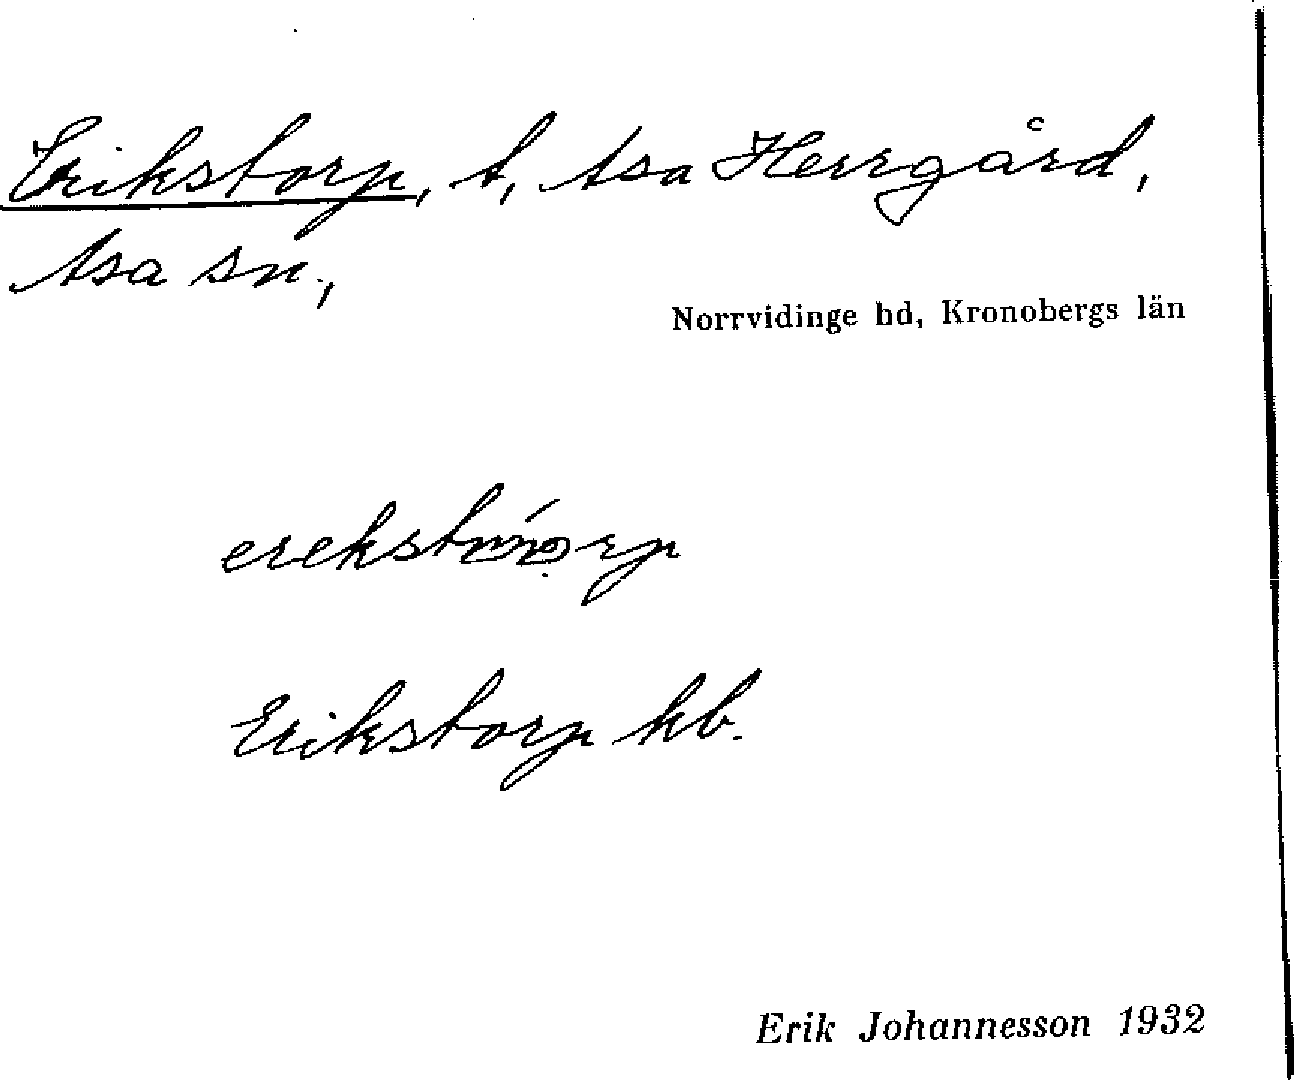 Erikstorp, t, Asa Herrgård,
Asa sn.,
Norrvidinge hd, Kronobergs län
Erikstorp kb.
Erik Johannesson 1932